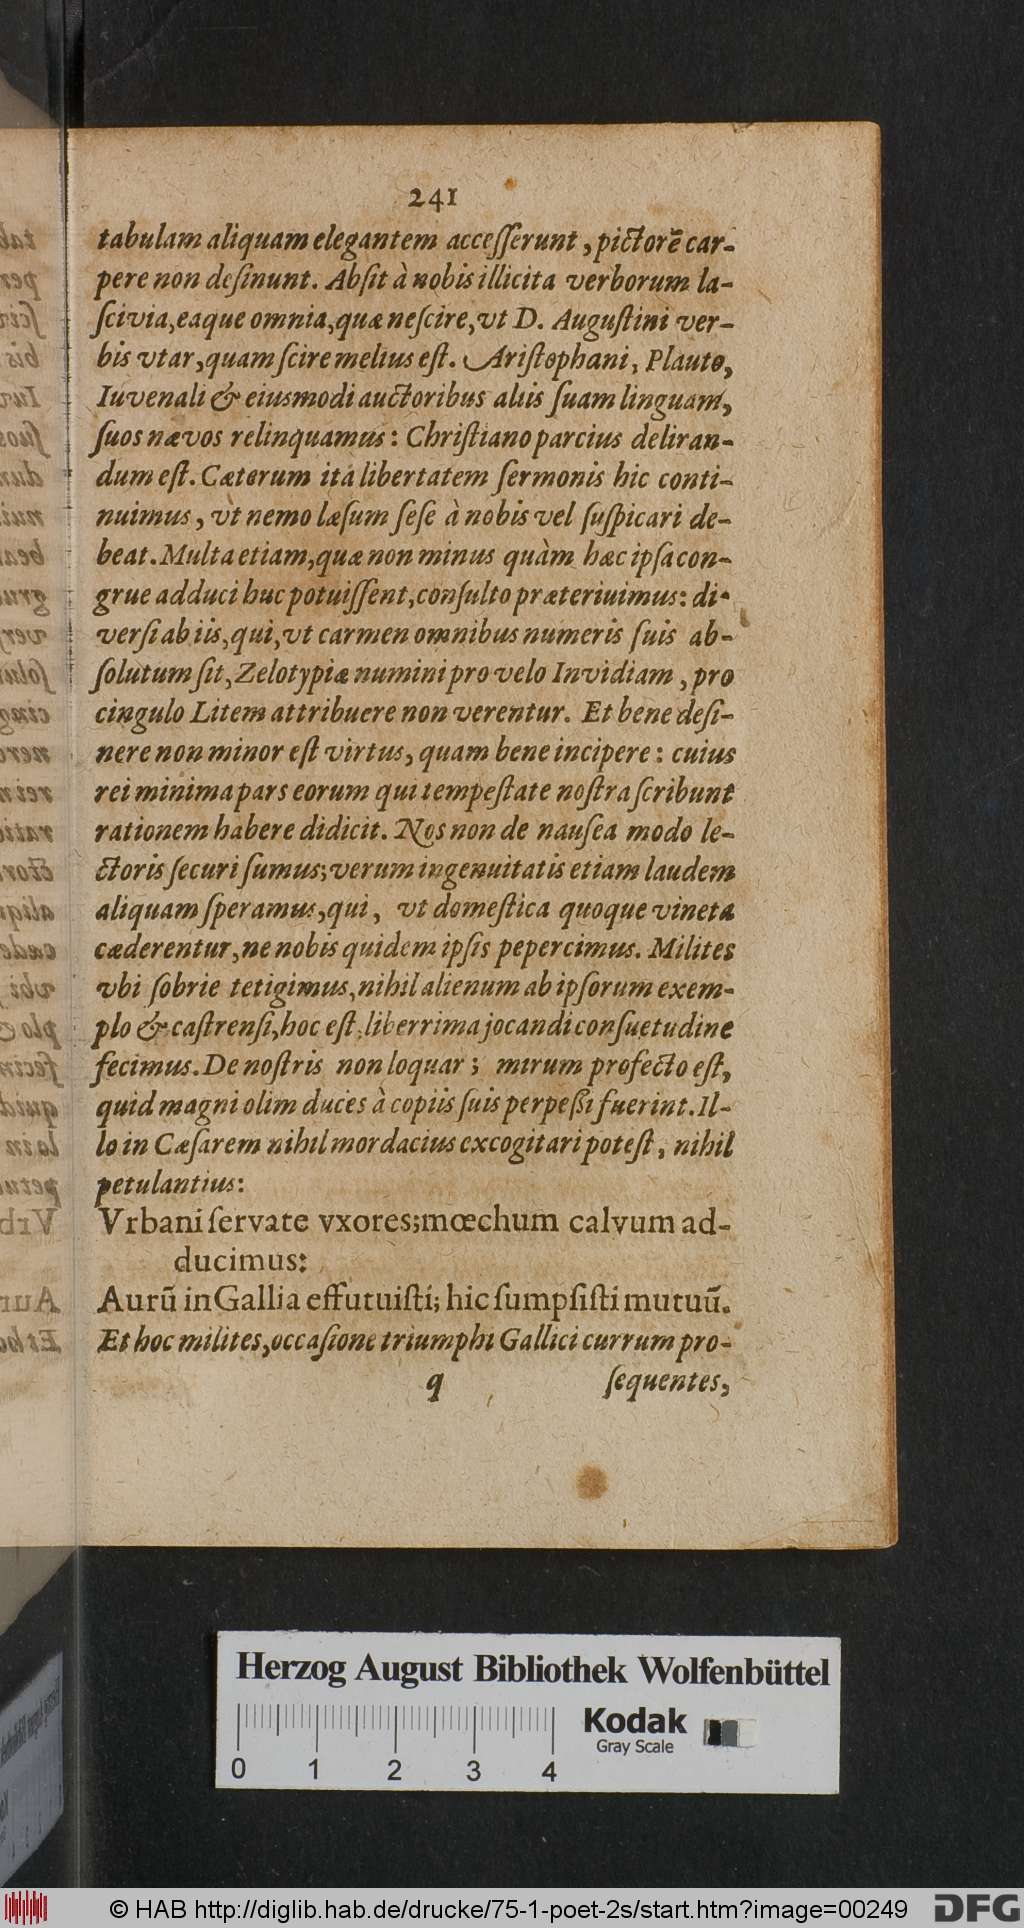 241
tabulam aliquam elegantem accesserunt, pictorẽ car-
pere non desinunt. Absit à nobis illicita verborum la-
scivia, eaque omnia, quæ nescire, vt D. Augustini ver-
bis vtar, quam scire melius est. Aristophani, Plauto,
Iuvenali & eiusmodi auctoribus aliis suam linguam,
suos nævos relinquamus: Christiano parcius deliran-
dum est. Cæterum ita libertatem sermonis hic conti-
nuimus, vt nemo læsum sese à nobis vel suspicari de-
beat. Multa etiam, quæ non minus quàm hæc ipsa con-
grue adduci huc potuissent, consulto præteriuimus: di-
versi ab iis, qui, vt carmen omnibus numeris suis ab-
solutum sit, Zelotypiæ numini pro velo Invidiam, pro
cingulo Litem attribuere non verentur. Et bene desi-
nere non minor est virtus, quam bene incipere: cuius
rei minima pars eorum qui tempestate nostra scribunt
rationem habere didicit. Nos non de nausea modo le-
ctoris securi sumus; verum ingenuitatis etiam laudem
aliquam speramus, qui, vt domestica quoque vineta
cæderentur, ne nobis quidem ipsis pepercimus. Milites
vbi sobrie tetigimus, nihil alienum ab ipsorum exem-
plo & castrensi, hoc est, liberrima jocandi consuetudine
fecimus. De nostris non loquar; mirum profecto est,
quid magni olim duces à copiis suis perpessi fuerint. Il-
lo in Cæsarem nihil mordacius excogitari potest, nihil
petulantius:
Vrbani servate vxores; mœchum calvum ad-
ducimus:
Aurũ in Gallia effutuisti; hic sumpsisti mutuũ.
Et hoc milites, occasione triumphi Gallici currum pro-
q sequentes,
Herzog August Bibliothek Wolfenbüttel
Kodak
Gray Scale
0 1 2 3 4
© HAB http://diglib.hab.de/drucke/75-1-poet-2s/start.htm?image=00249
DFG